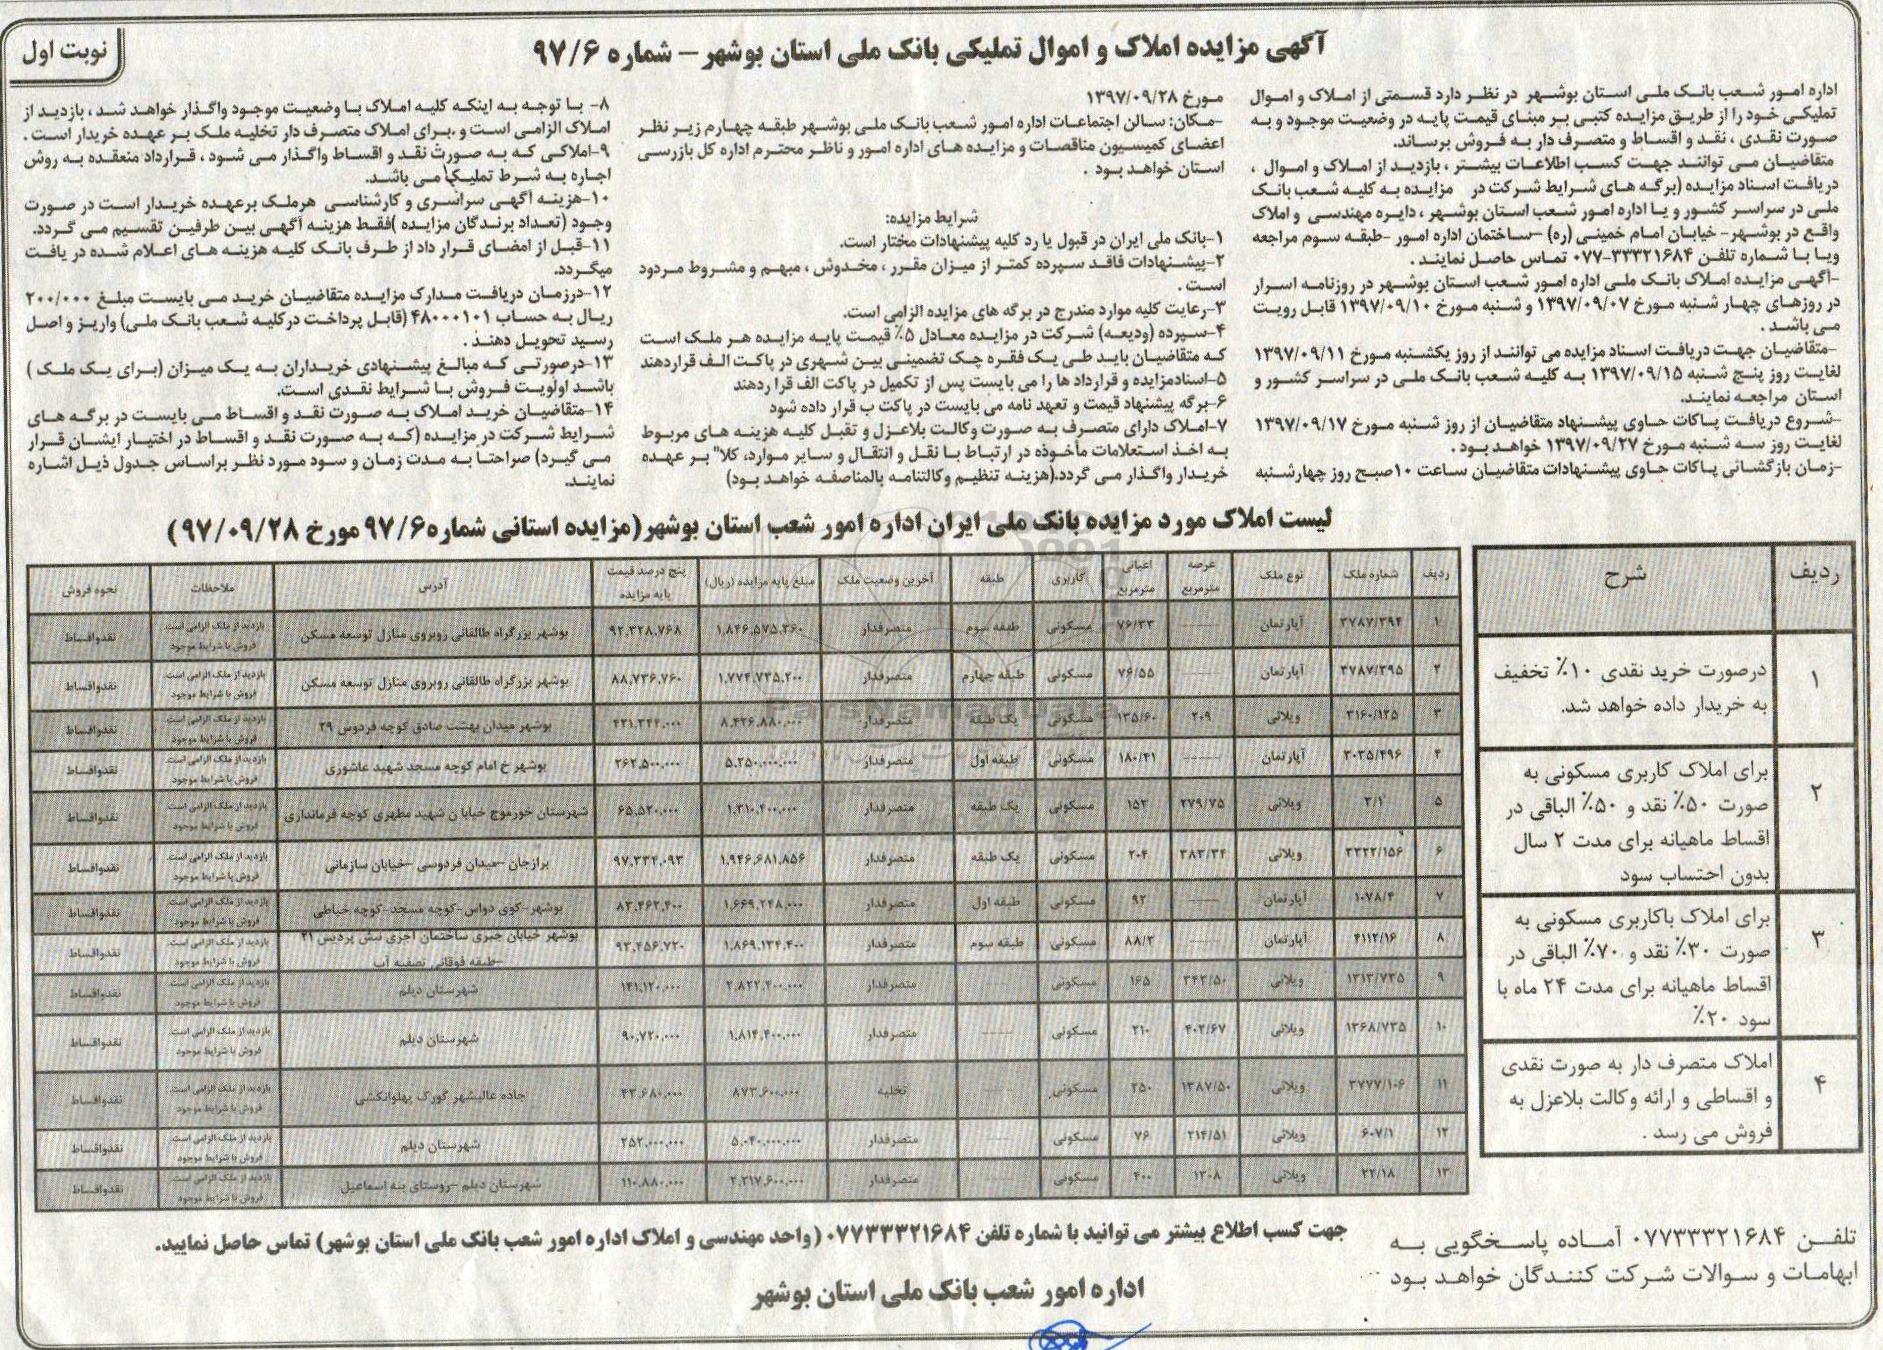 آگهی مزایده املاک و اموال تملیکی بانک ملی استان بوشهر – شماره ۹۷/۶
نوبت اول
اداره امور شعب بانک ملی استان بوشهر در نظر دارد قسمتی از املاک و اموال
تملیکی خود را از طریق مزایده کتبی بر مبنای قیمت پایه در وضعیت موجود و به
صورت نقدی ، نقد و اقساط و متصرف دار به فروش برساند.
متقاضیان می توانند جهت کسب اطلاعات بیشتر ، بازدید از املاک و اموال ،
دریافت اسناد مزایده (برگه های شرایط شرکت در مزایده به کلیه شعب بانک
ملی در سراسر کشور و یا اداره امور شعب استان بوشهر ، دایره مهندسی و املاک
واقع در بوشهر- خیابان امام خمینی (ره) –ساختمان اداره امور -طبقه سوم مراجعه
ویا با شماره تلفن ۳۳۳۲۱۶۸۴-۰۷۷ تماس حاصل نمایند .
-آگهی مزایده املاک بانک ملی اداره امور شعب استان بوشهر در روزنامه اسرار
در روزهای چهار شنبه مورخ ۱۳۹۷/۰۹/۰۷ و شنبه مورخ ۱۳۹۷/۰۹/۱۰ قابل رویت
می باشد .
-متقاضیان جهت دریافت اسناد مزایده می توانند از روز یکشنبه مورخ ۱۳۹۷/۰۹/۱۱
لغایت روز پنج شنبه ۱۳۹۷/۰۹/۱۵ به کلیه شعب بانک ملی در سراسر کشور و
استان مراجعه نمایند.
-شروع دریافت پاکات حاوی پیشنهاد متقاضیان از روز شنبه مورخ ۱۳۹۷/۰۹/۱۷
لغایت روز سه شنبه مورخ ۱۳۹۷/۰۹/۲۷ خواهد بود .
-زمان بازگشائی پاکات حاوی پیشنهادات متقاضیان ساعت ۱۰صبح روز چهارشنبه
مورخ ۱۳۹۷/۰۹/۲۸
-مکان: سالن اجتماعات اداره امور شعب بانک ملی بوشهر طبقه چهارم زیر نظر
اعضای کمیسیون مناقصات و مزایده های اداره امور و ناظر محترم اداره کل بازرسی
استان خواهد بود .
شرایط مزایده:
۱-بانک ملی ایران در قبول یا رد کلیه پیشنهادات مختار است.
۲-پیشنهادات فاقد سپرده کمتر از میزان مقرر ، مخدوش ، مبهم و مشروط مردود
است .
۳-رعایت کلیه موارد مندرج در برگه های مزایده الزامی است.
۴-سپرده (ودیعه) شرکت در مزایده معادل ۵٪ قیمت پایه مزایده هر ملک است
که متقاضیان باید طی یک فقره چک تضمینی بین شهری در پاکت الف قراردهند
۵-اسنادمزایده و قرارداد ها را می بایست پس از تکمیل در پاکت الف قرا ردهند
۶-برگه پیشنهاد قیمت و تعهد نامه می بایست در پاکت ب قرار داده شود
۷-املاک دارای متصرف به صورت وکالت بلاعزل و تقبل کلیه هزینه های مربوط
به اخذ استعلامات مأخوذه در ارتباط با نقل و انتقال و سایر موارد، کلا" بر عهده
خریدار واگذار می گردد.(هزینه تنظیم وکالتنامه بالمناصفه خواهد بود)
۸- با توجه به اینکه کلیه املاک با وضعیت موجود واگذار خواهد شد ، بازدید از
املاک الزامی است و .برای املاک متصرف دار تخلیه ملک بر عهده خریدار است .
۹-املاکی که به صورت نقد و اقساط واگذار می شود ، قرارداد منعقده به روش
اجاره به شرط تملیک می باشد.
۱۰-هزینه آگهی سراسری و کارشناسی هرملک برعهده خریدار است در صورت
وجود (تعداد برندگان مزایده )فقط هزینه آگهی بین طرفین تقسیم می گردد.
۱۱-قبل از امضای قرار داد از طرف بانک کلیه هزینه های اعلام شده دریافت
میگردد.
۱۲-درزمان دریافت مدارک مزایده متقاضیان خرید می بایست مبلغ ۲۰۰/۰۰۰
ریال به حساب ۴۸۰۰۰۱۰۱ (قابل پرداخت درکلیه شعب بانک ملی) واریز و اصل
رسید تحویل دهند .
۱۳-درصورتی که مبالغ پیشنهادی خریداران به یک میزان (برای یک ملک )
باشد اولویت فروش با شرایط نقدی است.
۱۴-متقاضیان خرید املاک به صورت نقد و اقساط می بایست در برگه های
شرایط شرکت در مزایده (که به صورت نقد و اقساط در اختیار ایشان قرار
می گیرد) صراحتا به مدت زمان و سود مورد نظر براساس جدول ذیل اشاره
نمایند.
لیست املاک مورد مزایده بانک ملی ایران اداره امور شعب استان بوشهر(مزایده استانی شماره۹۷/۶ مورخ ۹۷/۰۹/۲۸)
ردیف شرح
۱ درصورت خرید نقدی ۱۰٪ تخفیف
به خریدار داده خواهد شد.
۲ برای املاک کاربری مسکونی به
صورت ۵۰٪ نقد و ۵۰٪ الباقی در
اقساط ماهیانه برای مدت ۲ سال
بدون احتساب سود
۳ برای املاک باکاربری مسکونی به
صورت ۳۰٪ نقد و ۷۰٪ الباقی در
اقساط ماهیانه برای مدت ۲۴ ماه با
سود ۲۰٪
۴ املاک متصرف دار به صورت نقدی
و اقساطی و ارائه وکالت بلاعزل به
فروش می رسد .
ردیف شماره ملک نوع ملک عرصه مترمربع اعیانی مترمربع کاربری طبقه آخرین وضعیت ملک مبلغ پایه مزایده (ریال) پنج درصد قیمت پایه مزایده آدرس ملاحظات نحوه فروش
۱ ۳۷۸۷/۳۹۴ آپارتمان ----- ۷۶/۳۳ مسکونی طبقه سوم متصرفدار ۱،۸۴۶،۵۷۵،۳۶۰ ۹۲،۳۲۸،۷۶۸ بوشهر بزرگراه طالقانی روبروی منازل توسعه مسکن بازدید از ملک الزامی است. فروش با شرایط موجود نقدواقساط
۲ ۳۷۸۷/۳۹۵ آپارتمان ----- ۷۶/۵۵ مسکونی طبقه چهارم متصرفدار ۱،۷۷۴،۷۳۵،۲۰۰ ۸۸،۷۳۶،۷۶۰ بوشهر بزرگراه طالقانی روبروی منازل توسعه مسکن بازدید از ملک الزامی است. فروش با شرایط موجود نقدواقساط
۳ ۳۱۶۰/۱۲۵ ویلائی ۲۰۹ ۱۳۵/۶۰ مسکونی یک طبقه متصرفدار ۸،۴۲۶،۸۸۰،۰۰۰ ۴۲۱،۳۴۴،۰۰۰ بوشهر میدان بهشت صادق کوچه فردوس ۲۹ بازدید از ملک الزامی است. فروش با شرایط موجود نقدواقساط
۴ ۳۰۳۵/۴۹۶ آپارتمان ----- ۱۸۰/۴۱ مسکونی طبقه اول متصرفدار ۵،۲۵۰،۰۰۰،۰۰۰ ۲۶۲،۵۰۰،۰۰۰ بوشهر خ امام کوچه مسجد شهید عاشوری بازدید از ملک الزامی است. فروش با شرایط موجود نقدواقساط
۵ ۲/۱ ویلائی ۲۷۹/۷۵ ۱۵۳ مسکونی یک طبقه متصرفدار ۱،۳۱۰،۴۰۰،۰۰۰ ۶۵،۵۲۰،۰۰۰ شهرستان خورموج خیابان شهید مطهری کوچه فرمانداری بازدید از ملک الزامی است. فروش با شرایط موجود نقدواقساط
۶ ۳۳۲۲/۱۵۶ ویلائی ۳۸۳/۳۴ ۲۰۴ مسکونی یک طبقه متصرفدار ۱،۹۴۶،۶۸۱،۸۵۶ ۹۷،۳۳۴،۰۹۳ برازجان –میدان فردوسی –خیابان سازمانی بازدید از ملک الزامی است. فروش با شرایط موجود نقدواقساط
۷ ۱۰۷۸/۴ آپارتمان ----- ۹۲ مسکونی طبقه اول متصرفدار ۱،۶۶۹،۲۴۸،۰۰۰ ۸۳،۴۶۲،۴۰۰ بوشهر-کوی دواس-کوچه مسجد-کوچه خیاطی بازدید از ملک الزامی است. فروش با شرایط موجود نقدواقساط
۸ ۴۱۱۲/۱۶ آپارتمان ----- ۸۸/۲ مسکونی طبقه سوم متصرفدار ۱،۸۶۹،۱۳۴،۴۰۰ ۹۳،۴۵۶،۷۲۰ بوشهر خیابان جبری ساختمان آجری نبش پردیس ۲۱ –طبقه فوقانی تصفیه آب بازدید از ملک الزامی است. فروش با شرایط موجود نقدواقساط
۹ ۱۳۱۳/۷۳۵ ویلائی ۳۴۳/۵۰ ۱۶۵ مسکونی ----- متصرفدار ۲،۸۲۲،۴۰۰،۰۰۰ ۱۴۱،۱۲۰،۰۰۰ شهرستان دیلم بازدید از ملک الزامی است. فروش با شرایط موجود نقدواقساط
۱۰ ۱۳۶۸/۷۳۵ ویلائی ۴۰۲/۶۷ ۲۱۰ مسکونی ----- متصرفدار ۱،۸۱۴،۴۰۰،۰۰۰ ۹۰،۷۲۰،۰۰۰ شهرستان دیلم بازدید از ملک الزامی است. فروش با شرایط موجود نقدواقساط
۱۱ ۳۷۷۷/۱۰۶ ویلائی ۱۳۸۷/۵۰ ۲۵۰ مسکونی ----- تخلیه ۸۷۳،۶۰۰،۰۰۰ ۴۳،۶۸۰،۰۰۰ جاده عالیشهر گورک پهلوانکشی بازدید از ملک الزامی است. فروش با شرایط موجود نقدواقساط
۱۲ ۶۰۷/۱ ویلائی ۲۱۴/۵۱ ۷۶ مسکونی ----- متصرفدار ۵،۰۴۰،۰۰۰،۰۰۰ ۲۵۲،۰۰۰،۰۰۰ شهرستان دیلم بازدید از ملک الزامی است. فروش با شرایط موجود نقدواقساط
۱۳ ۲۲/۱۸ ویلائی ۱۳۰۸ ۴۰۰ مسکونی ----- متصرفدار ۲،۲۱۷،۶۰۰،۰۰۰ ۱۱۰،۸۸۰،۰۰۰ شهرستان دیلم –روستای بنه اسماعیل بازدید از ملک الزامی است. فروش با شرایط موجود نقدواقساط
ParsNamadData
جهت کسب اطلاع بیشتر می توانید با شماره تلفن ۰۷۷۳۳۳۲۱۶۸۴ (واحد مهندسی و املاک اداره امور شعب بانک ملی استان بوشهر) تماس حاصل نمایید.
تلفن ۰۷۷۳۳۳۲۱۶۸۴ آماده پاسخگویی به
ابهامات و سوالات شرکت کنندگان خواهد بود
اداره امور شعب بانک ملی استان بوشهر